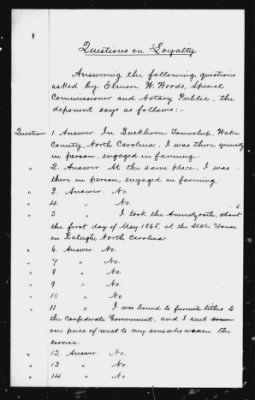 Questions on Loyalty.
Answering the following questions
asked by Elmore W. Woods, Special
Commissioner and Notary Public, the
deponent says as follows:-
Question 1. Answer. In Buckhorn Township, Wake
County, North Carolina, I was there
in person, engaged in farming.
" 2. Answer. At the same place, I was
there in person, engaged in farming.
" 3. Answer. No.
" 4 " No.
" 5 " I took the Amnesty oath, about
the first day of May 1865, at the State House
in Raleigh North Carolina
" 6. Answer. No.
" 7 " No.
" 8 " No.
" 9 " No.
" 10 " No.
" 11 " I was bound to furnish tithes to
the Confederate Government, and I sent
one piece of meat to my sons who were in the
service.
" 12 Answer No.
" 13 " No.
" 14 " No.